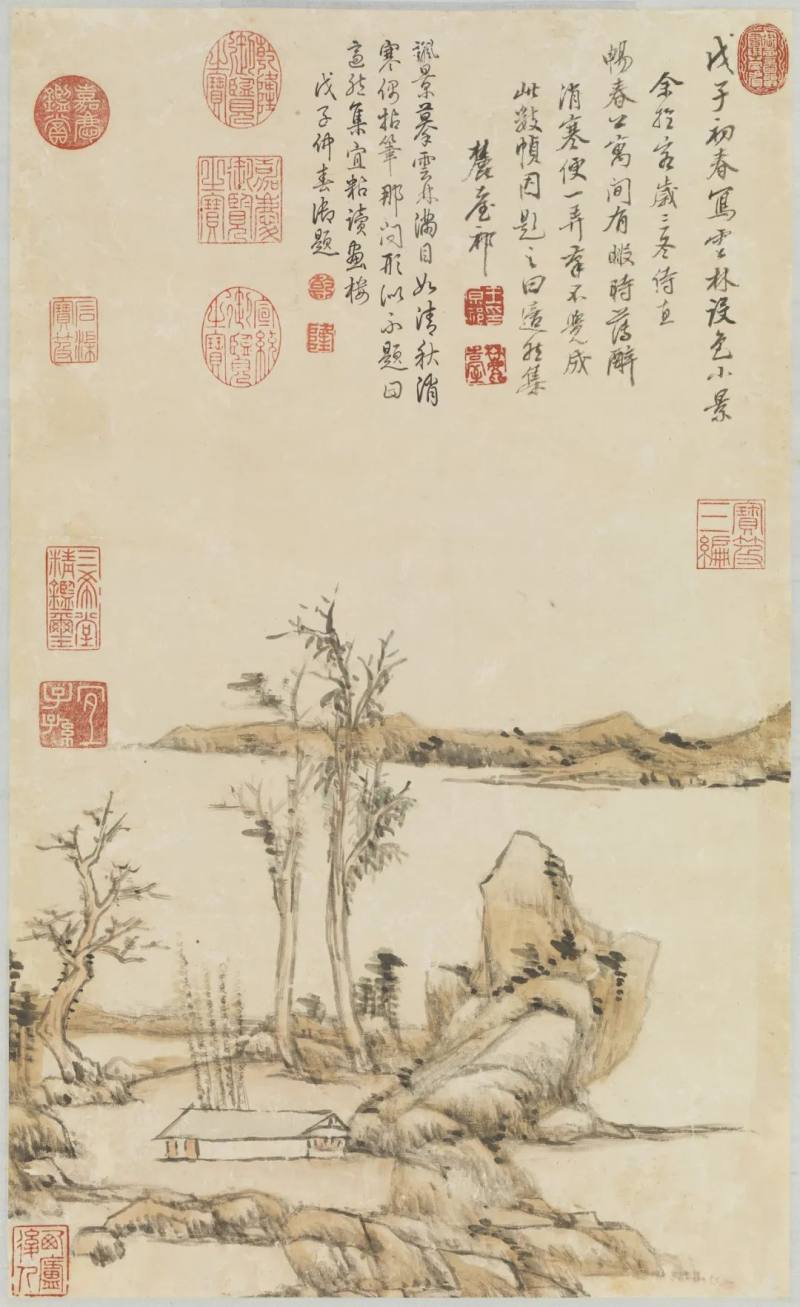 戊子初春寫雲林設色小景
余於客歲三冬侍直
暢春公寓間有暇時薄醉
消寒便一弄筆不覺成
此數幀因題之曰適然集
麓臺祁
王原祁印
麓臺
諷景摹雲林滿目如清秋消
寒偶拈筆那問形似不題曰
適然集宜粘讀畫樓
戊子仲春御題
乾
隆
乾隆御覽之寶
嘉慶御覽之寶
宣統御覽之寶
嘉慶鑑賞
石渠寶笈
三希堂精鑑璽
宜子孫
寶笈三編
西廬後人